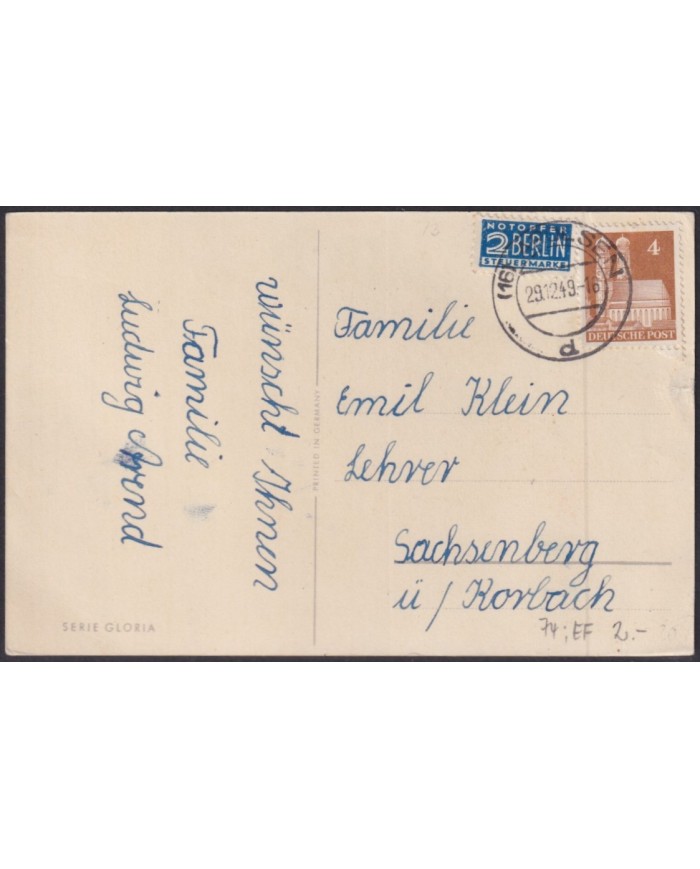 NOTOPFER
2 BERLIN
STEUERMARKE
4
DEUTSCHE POST
(16)
29.12.49.-16
d
wünscht Ihnen
Familie
Ludwig Arend
Familie
Emil Klein
Lehrer
Sachsenberg
ü/Korbach
PRINTED IN GERMANY
SERIE GLORIA
74; EF 2.-